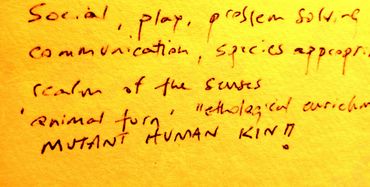 Social, play, problem solving
communication, species appropri
realm of the senses
'animal turn' "ethological enrichm
MUTANT HUMAN KIN?